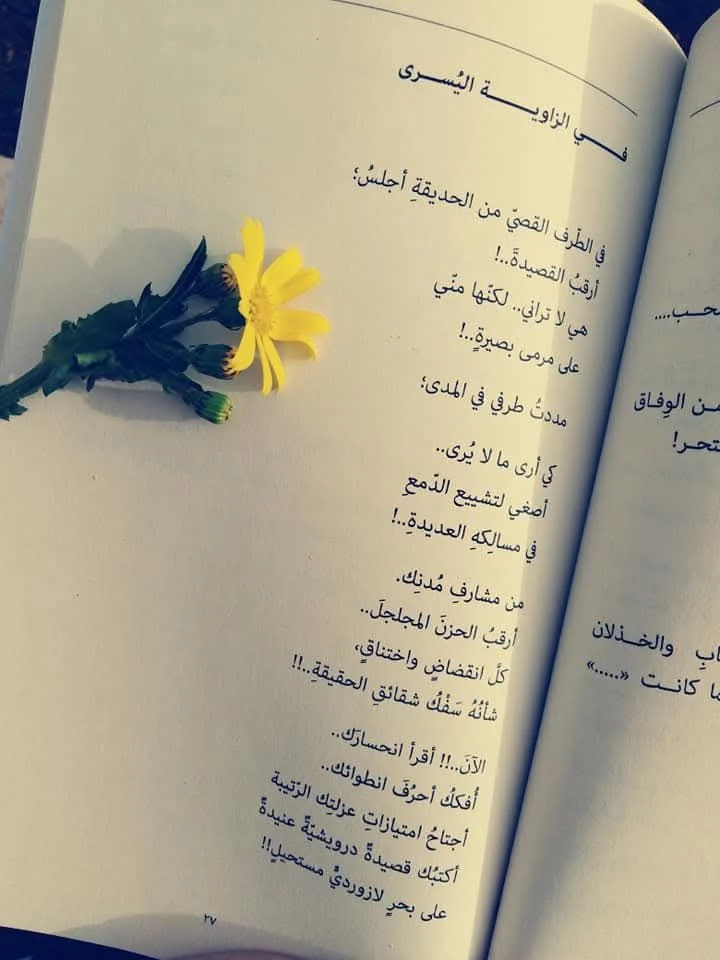 في الزاوية اليُسرى
في الطّرف القصيّ من الحديقةِ أجلسُ؛
أرقبُ القصيدةَ..!
هي لا تراني.. لكنّها منّي
على مرمى بصيرةٍ..!
مددتُ طرفي في المدى؛
كي أرى ما لا يُرى..
أصغي لتشييع الدّمعِ
في مسالِكهِ العديدةِ..!
من مشارفِ مُدنِك.
أرقبُ الحزنَ المجلجلَ..
كلَّ انقضاضٍ واختناقٍ،
شأنُهُ سَفْكُ شقائقِ الحقيقةِ..!!
الآنَ..!! أقرأ انحسارَك..
أُفككُ أحرُفَ انطوائك..
أجتاحُ امتيازاتِ عزلتِك الرّتيبة
أكتبُك قصيدةً درويشيّةً عنيدةً
على بحرٍ لازورديٍّ مستحيلٍ!!
٢٧
من الوِفاق
والخذلان
كانت «.....»